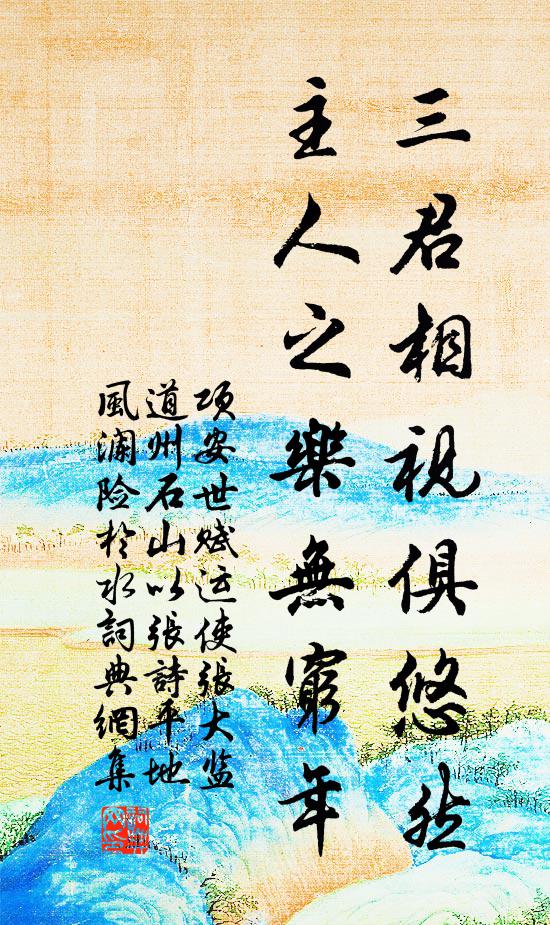 三君相視俱悠然
主人之樂無窮年
项安世赋运使張大监
道州石山以張詩平地
風澜险於水詞典網集